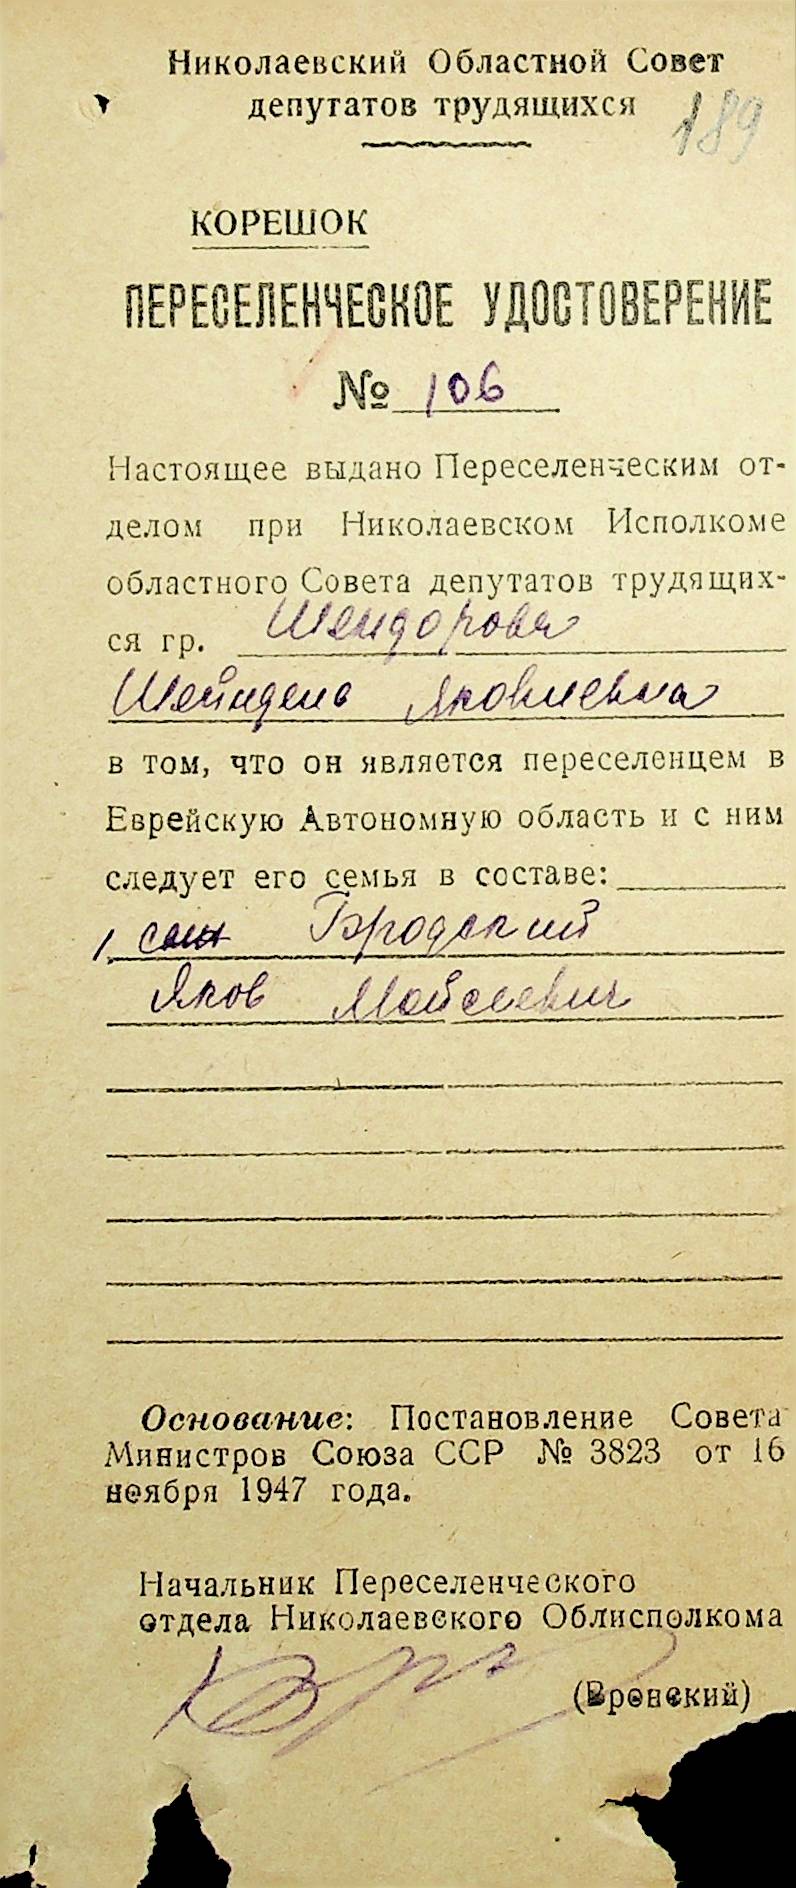 Николаевский Областной Совет
депутатов трудящихся
189
КОРЕШОК
ПЕРЕСЕЛЕНЧЕСКОЕ УДОСТОВЕРЕНИЕ
№ 106
Настоящее выдано Переселенческим от-
делом при Николаевском Исполкоме
областного Совета депутатов трудящих-
ся гр. Шендорова
Шейндель Яковлевна
в том, что он является переселенцем в
Еврейскую Автономную область и с ним
следует его семья в составе:
1. сын Бродский
Яков Мойсеевич
Основание: Постановление Совета
Министров Союза ССР № 3823 от 16
ноября 1947 года.
Начальник Переселенческого
отдела Николаевского Облисполкома
(Вронский)